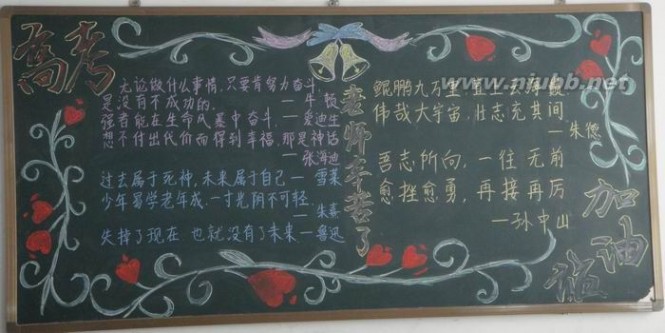 高考
无论做什么事情,只要肯努力奋斗,
是没有不成功的。 —牛顿
强者能在生命风暴中奋斗。—爱迪生
想不付出代价而得到幸福,那是神话
—张海迪
过去属于死神,未来属于自己—雪莱
少年易学老年成,一寸光阴不可轻
—朱熹
失掉了现在 也就没有了未来—鲁迅
老师辛苦了
鲲鹏九万里
伟哉大宇宙,壮志充其间
—朱德
吾志所向,一往无前
愈挫愈勇,再接再厉
—孙中山
加油